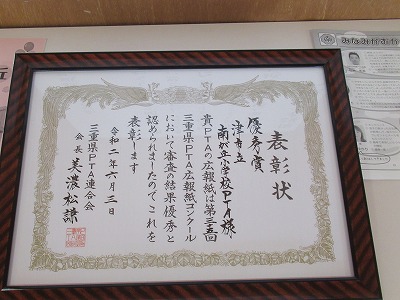 表彰状
優秀賞
津市立
南が丘小学校PTA様
貴PTAの広報紙は第三五回
三重県PTA広報紙コンクール
において審査の結果優秀と
認められましたのでこれを
表彰します
令和二年六月三日
三重県PTA連合会
会長 美濃松謙
みなみがおか